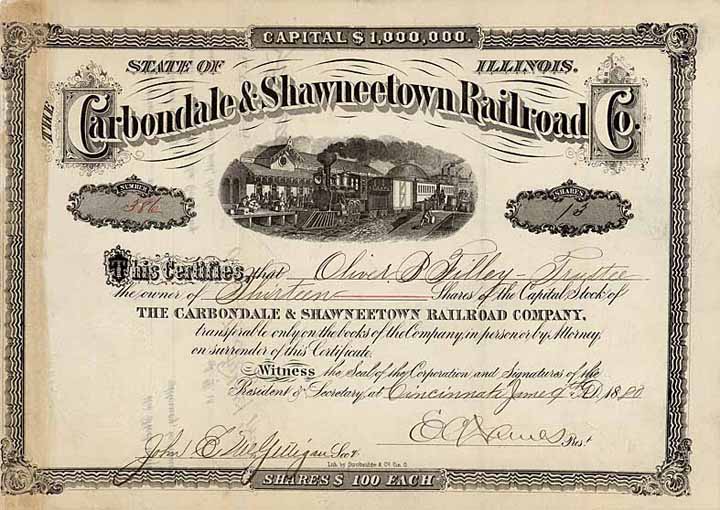 CAPITAL $1,000,000.
STATE OF ILLINOIS.
THE
Carbondale & Shawneetown Railroad Co.
NUMBER
386
SHARES
13
This Certifies, that Oliver D Filley - Trustee
the owner of Thirteen Shares of the Capital Stock of
THE CARBONDALE & SHAWNEETOWN RAILROAD COMPANY,
transferable only on the books of the Company, in person or by Attorney,
on surrender of this Certificate.
Witness the Seal of the Corporation and Signatures of the
President & Secretary, at Cincinnati June 9th A.D. 1880
Pres.t
John C Sec'y.
Lith. by Strobridge & Co. Cin. O.
SHARES $ 100 EACH